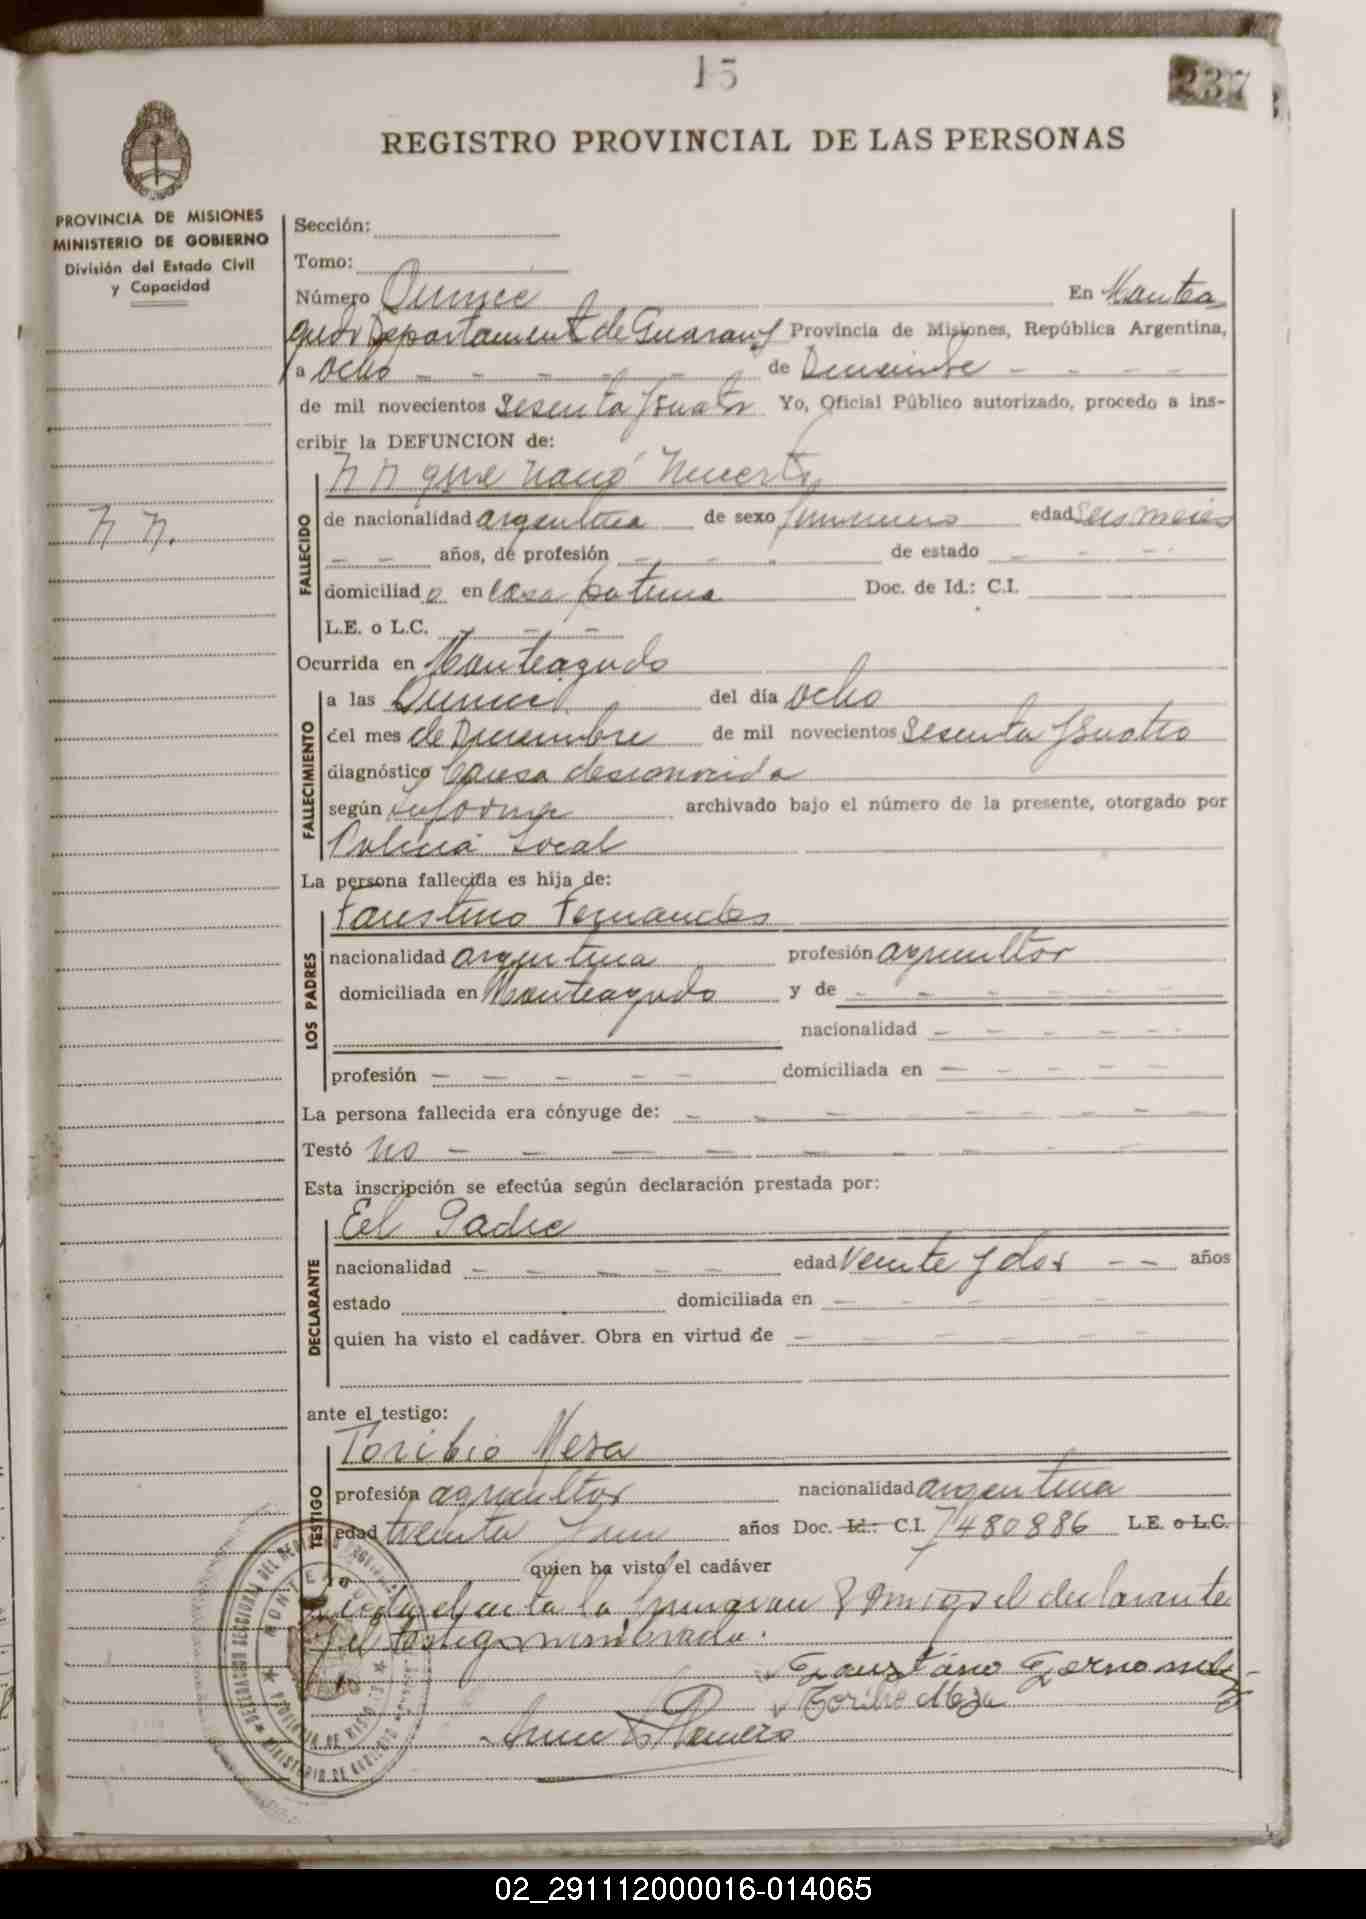 15
237
REGISTRO PROVINCIAL DE LAS PERSONAS
PROVINCIA DE MISIONES
MINISTERIO DE GOBIERNO
División del Estado Civil
y Capacidad
N N.
Sección:
Tomo:
Número Quince En Montea
gudo Departamento de Guaraní Provincia de Misiones, República Argentina,
a ocho de Diciembre
de mil novecientos Sesenta y Cuatro Yo, Oficial Público autorizado, procedo a ins-
cribir la DEFUNCION de:
N N que nació muerto
FALLECIDO
de nacionalidad argentina de sexo femenino edad seis meses
años, de profesión de estado
domiciliado en casa paterna Doc. de Id.: C.I.
L.E. o L.C.
Ocurrida en Monteagudo
FALLECIMIENTO
a las Quince del día ocho
del mes de Diciembre de mil novecientos Sesenta y Cuatro
diagnóstico Causa desconocida
según informe archivado bajo el número de la presente, otorgado por
Policia Local
La persona fallecida es hija de:
LOS PADRES
Faustino Fernandes
nacionalidad argentina profesión agricultor
domiciliada en Monteagudo y de
nacionalidad
profesión domiciliada en
La persona fallecida era cónyuge de:
Testó no
Esta inscripción se efectúa según declaración prestada por:
DECLARANTE
El Padre
nacionalidad edad Veinte y dos años
estado domiciliada en
quien ha visto el cadáver. Obra en virtud de
ante el testigo:
TESTIGO
Toribio Meza
profesión agricultor nacionalidad argentina
edad treinta y un años Doc. Id.: C.I. 7480886 L.E. o L.C.
quien ha visto el cadáver
Leida el acta la firman conmigo el declarante
y el testigo nombrado.
Faustino Fernandez
Toribio Meza
Romero
DELEGACION SECCIONAL DEL REGISTRO
MONTEAGUDO
PROVINCIA DE MISIONES
MINISTERIO DE GOBIERNO
02_291112000016-014065